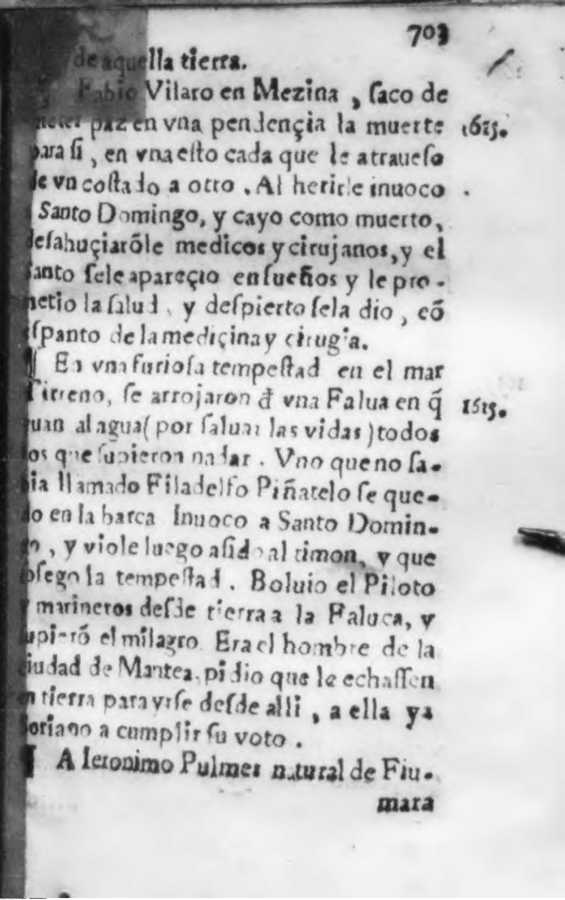 703
de aquella tierra.
Fabio Vilaro en Mezina, ſaco de
meter paz en vna pendençia la muerte 1615.
para ſi, en vna eſto cada que le atraueſo
de vn coſtado a otro. Al herirle inuoco
a Santo Domingo, y cayo como muerto,
deſahuçiarõle medicos y cirujanos, y el
ſanto ſele apareçio en ſueños y le pro-
metio la ſalud, y deſpierto ſela dio, cõ
eſpanto de la mediçina y cirugia.
¶ En vna furioſa tempeſtad en el mar
Tirreno, ſe arrojaron đ vna Falua en q̃ 1615.
yuan al agua (por ſaluar las vidas) todos
los que ſupieron nadar. Vno que no ſa-
bia llamado Filadelfo Piñatelo ſe que-
do en la barca Inuoco a Santo Domin-
go, y viole luego aſido al timon, y que
oſego la tempeſtad. Boluio el Piloto
y marineros deſde tierra a la Faluca, y
ſupierõ el milagro. Era el hombre de la
ciudad de Mantea, pidio que le echaſſen
en tierra para yrſe deſde alli, a ella ya
Soriano a cumplir ſu voto.
¶ A Ieronimo Pulmer natural de Fiu-
mara